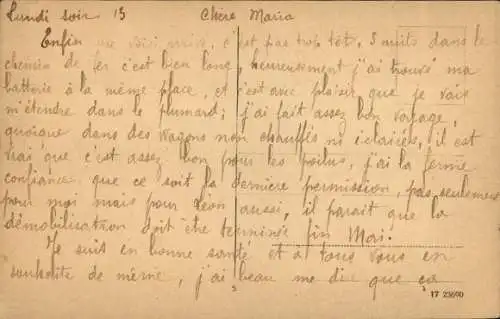 Lundi soir 13 Chère Maria
Enfin me voici arrivé, c'est pas trop tôt, 3 nuits dans le
chemin de fer c'est bien long, heureusement j'ai trouvé ma
batterie à la même place, et c'est avec plaisir que je vais
m'étendre dans le plumard; j'ai fait assez bon voyage,
quoique dans des wagons non chauffés ni éclairés, il est
vrai que c'est assez bon pour les poilus, j'ai la ferme
confiance que ce soit la dernière permission, pas seulement
pour moi mais pour Léon aussi, il parait que la
démobilisation doit être terminée fin Mai.
Je suis en bonne santé et a tous vous en
souhaite de même, j'ai beau me dire que ça
17 23690